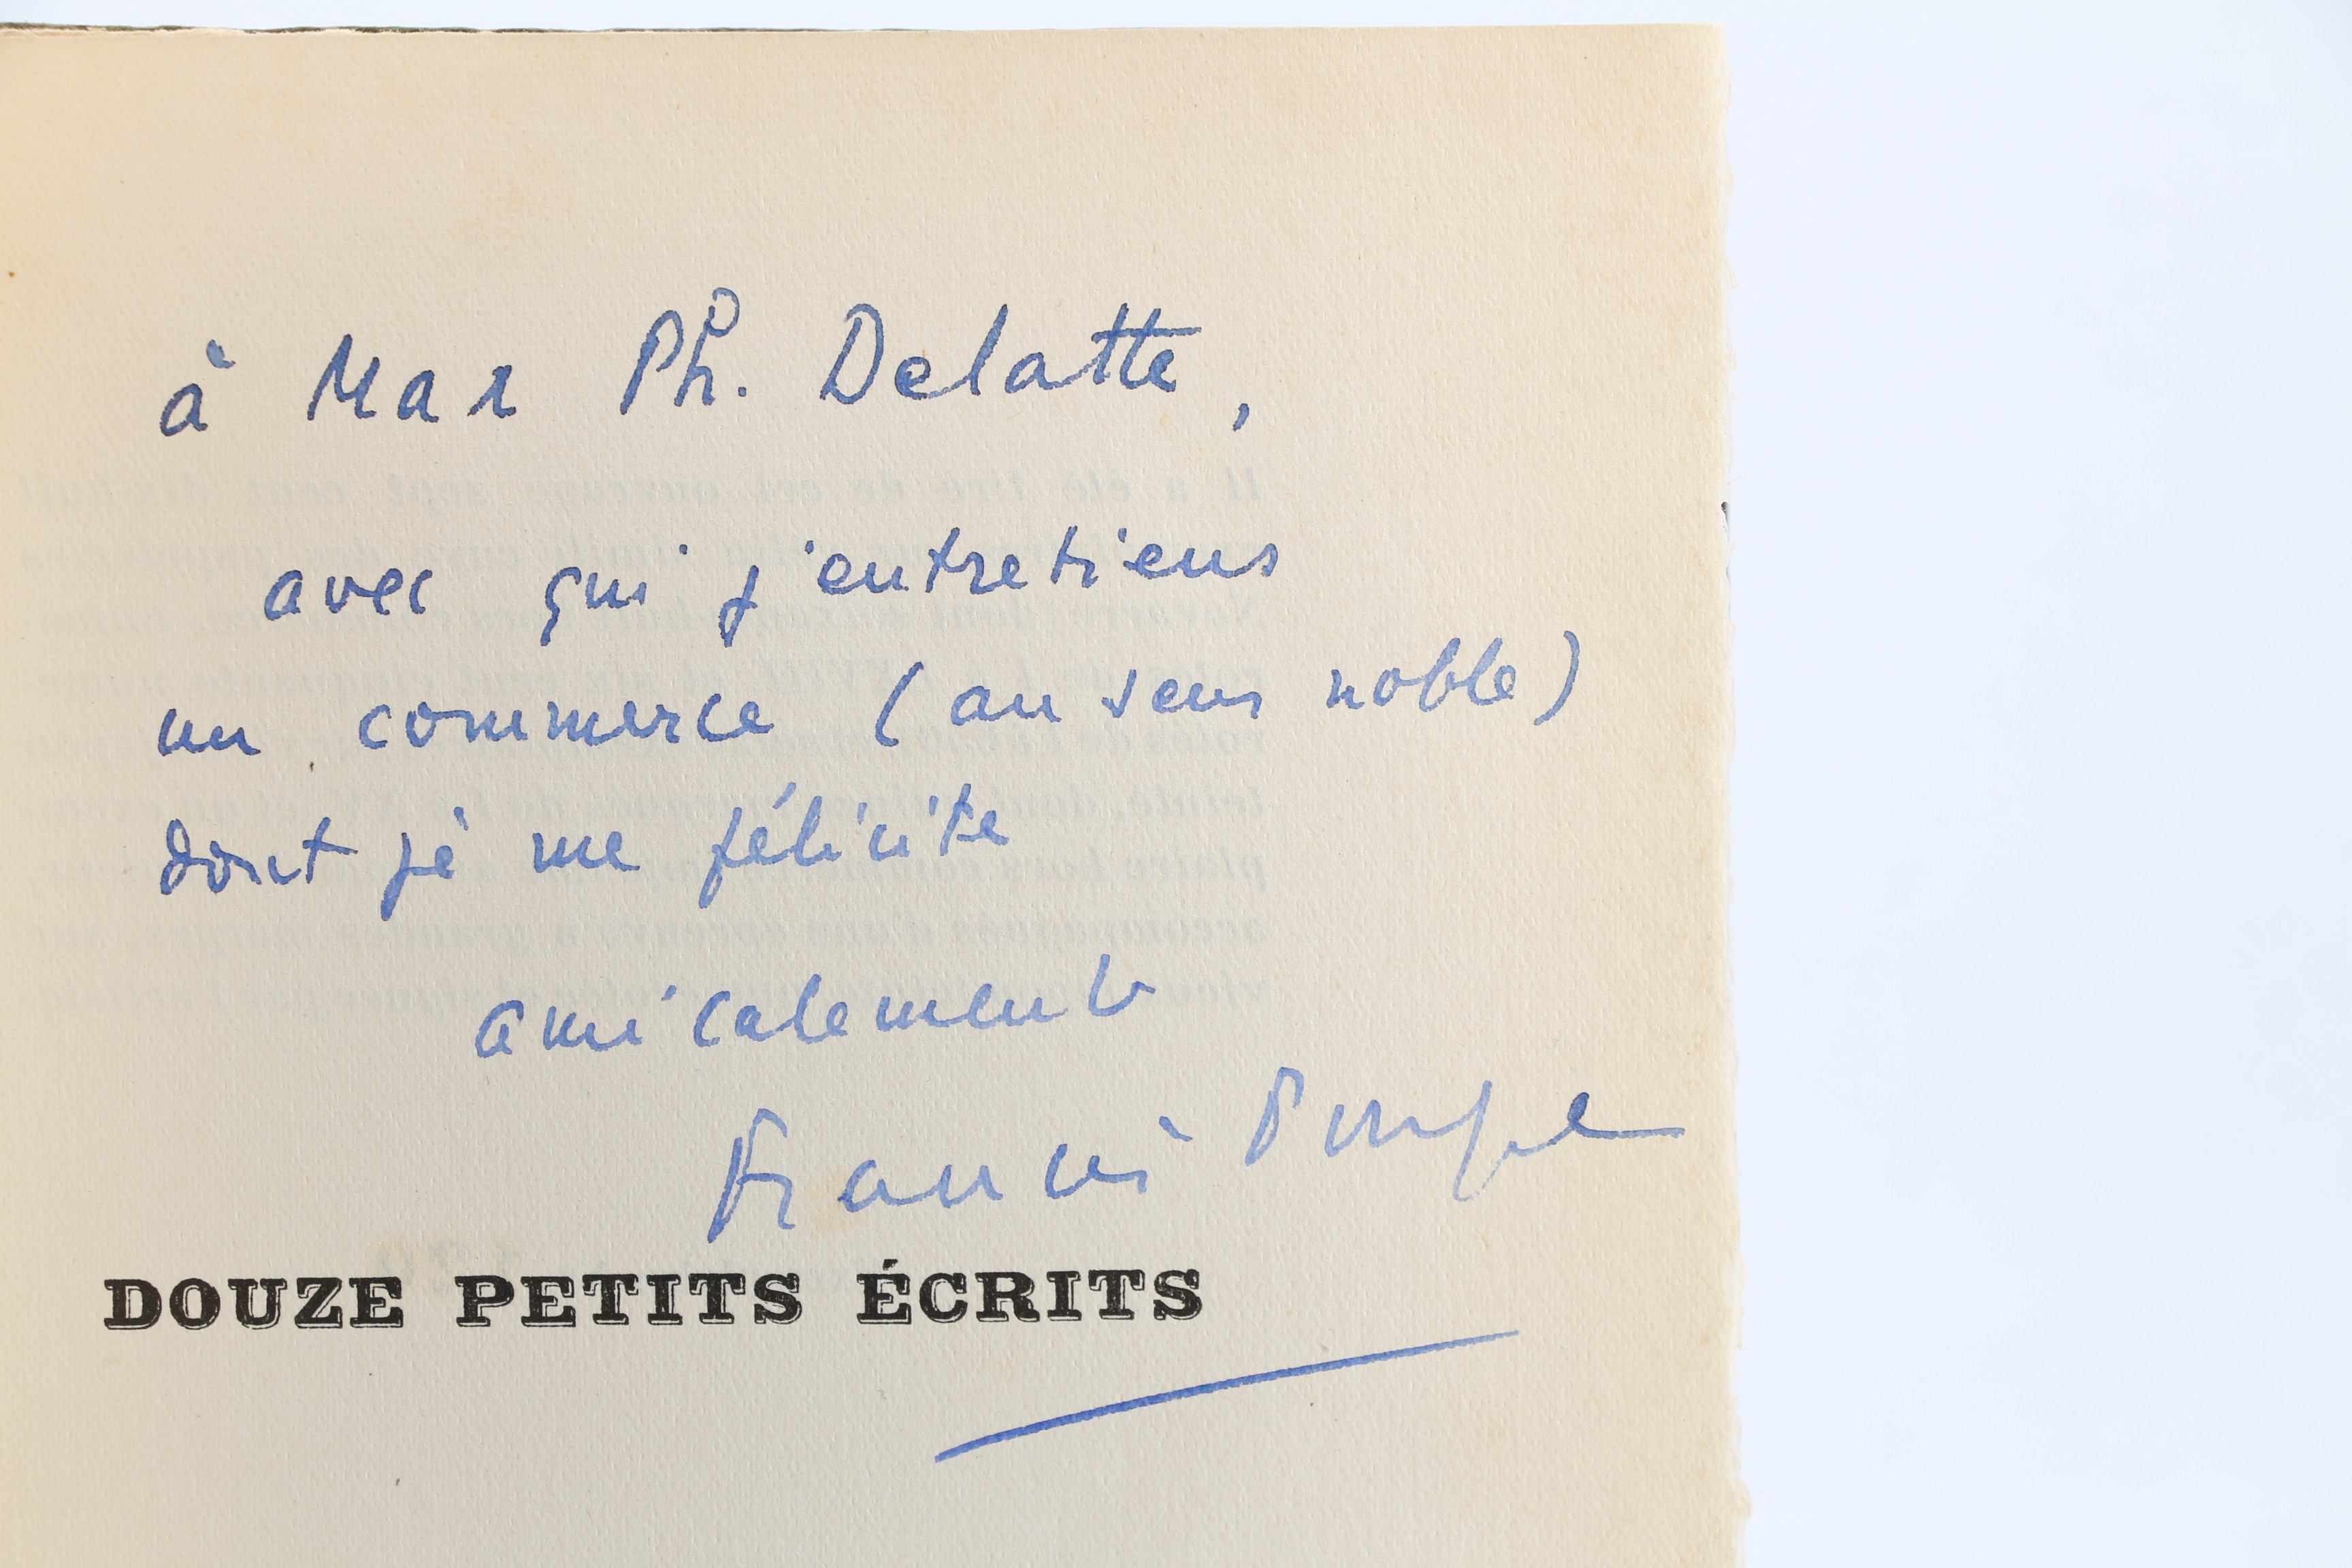 à Max Ph. Delatte,
avec qui j'entretiens
un commerce (au sens noble)
dont je me félicite
amicalement
Francis Ponge
DOUZE PETITS ÉCRITS